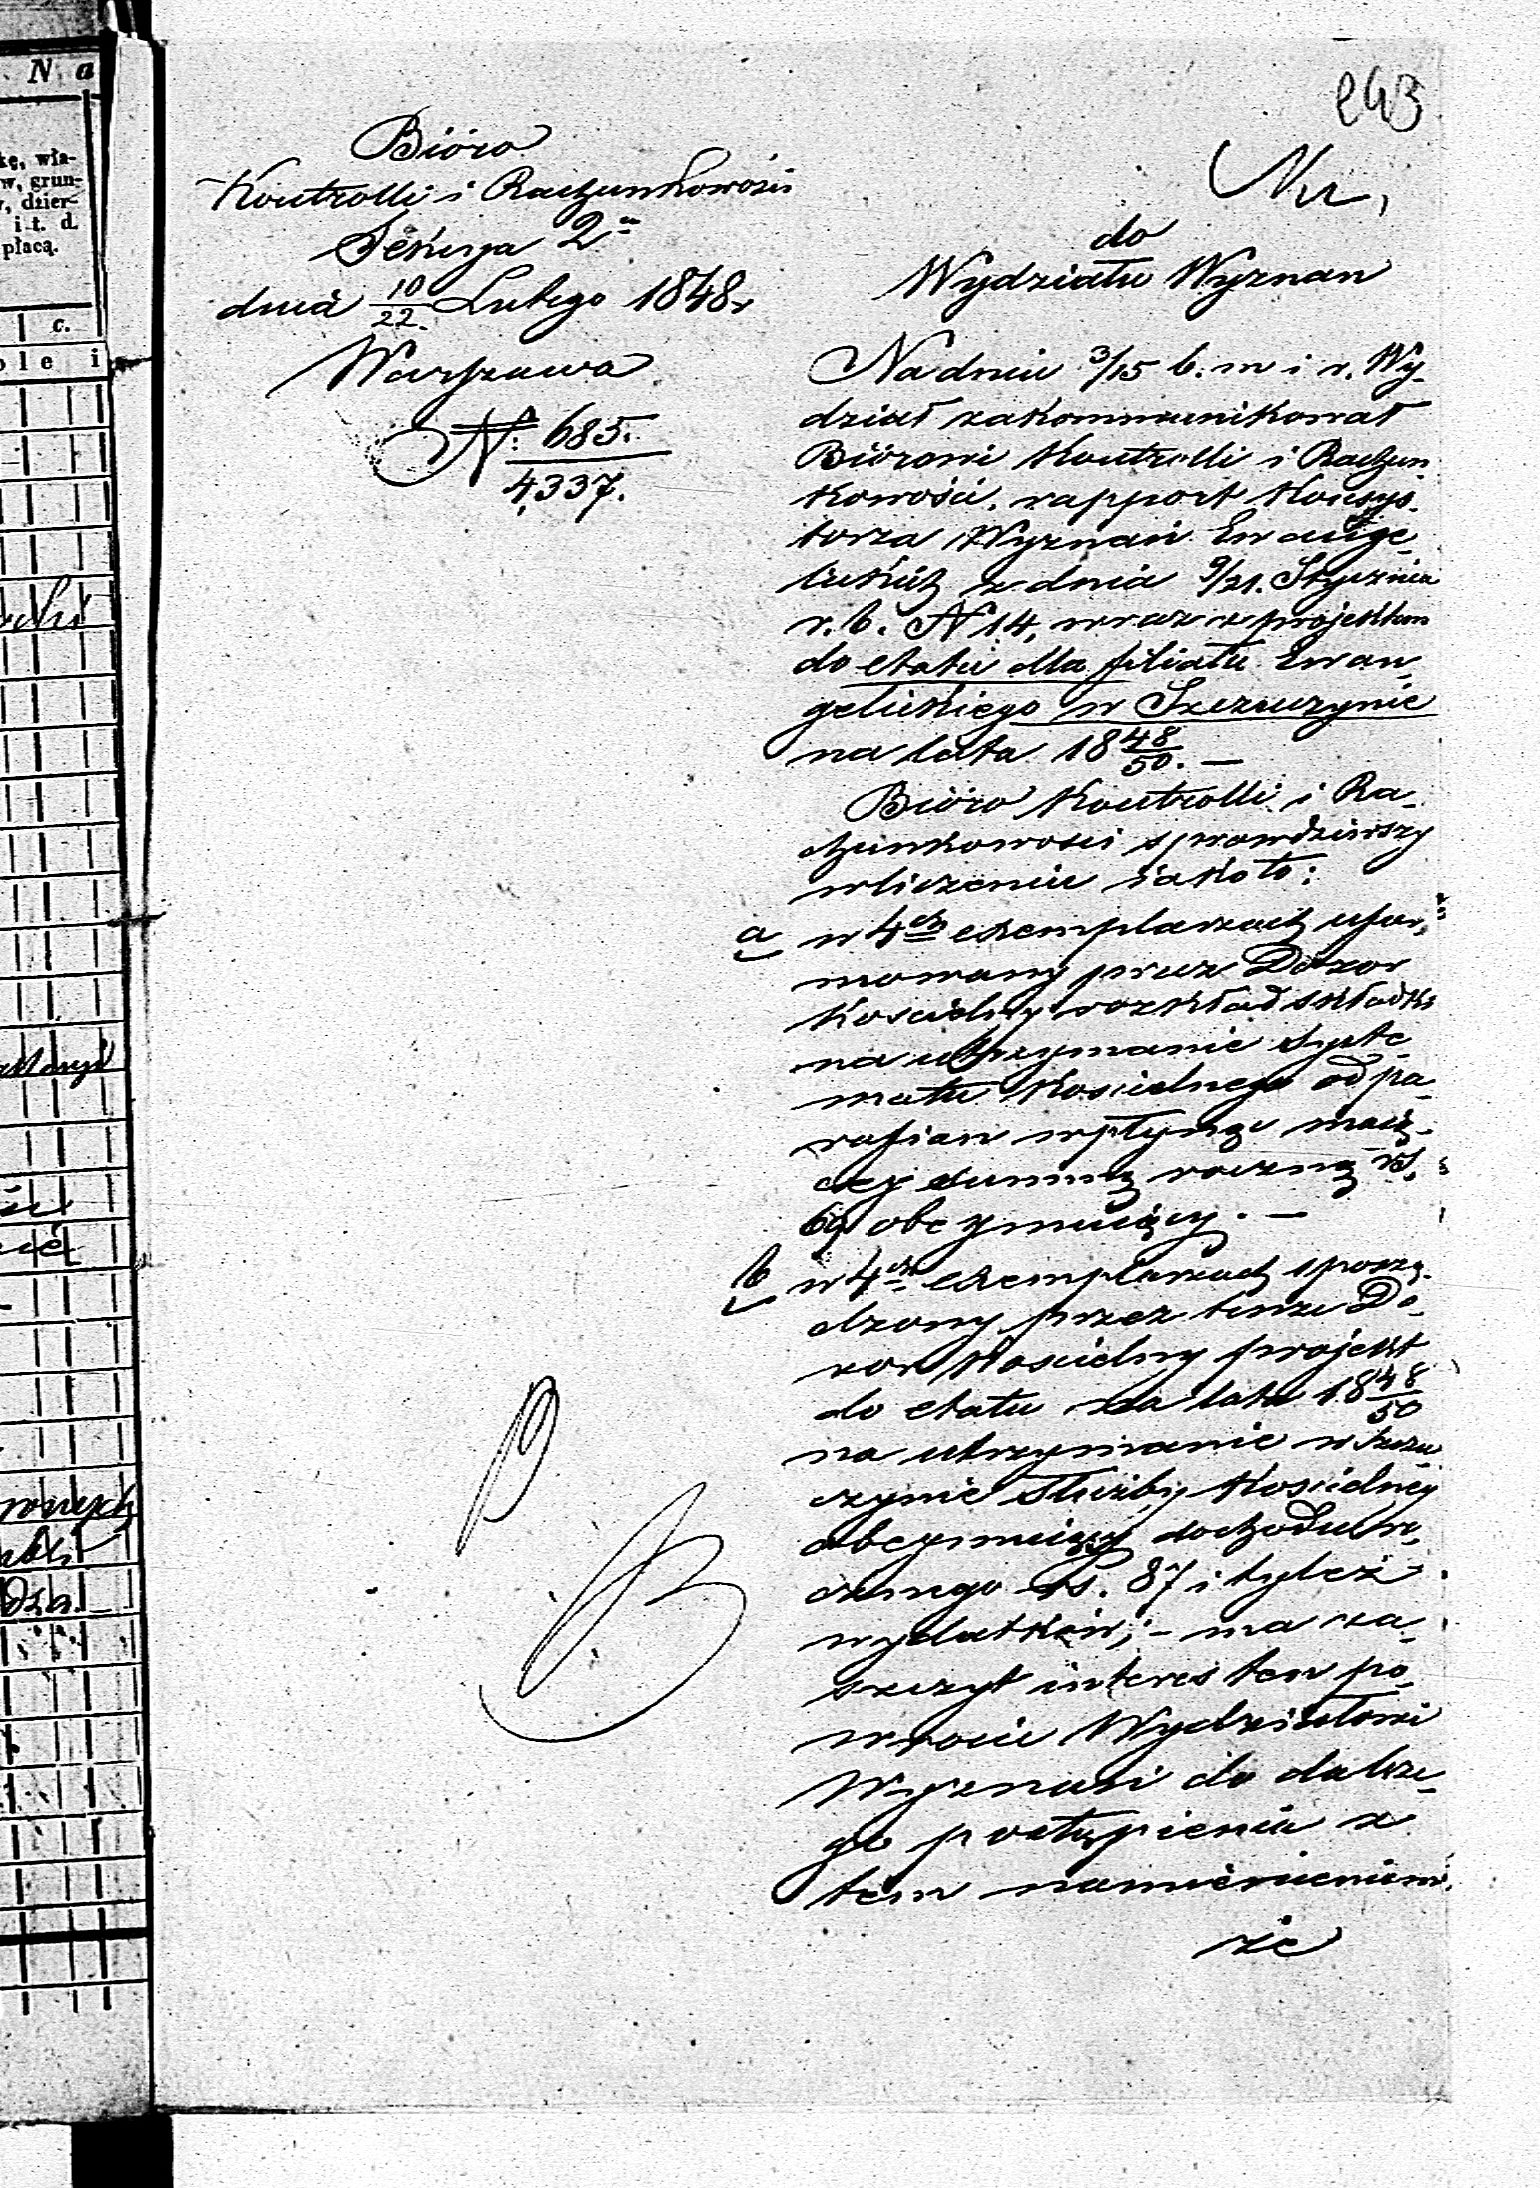 N a
kę, wła-
w, grun-
y, dzier-
i t. d.
płacą.
c.
o l e i
243
Bióro
Kontrolli i Rachunkowości
Sekcya 2a
dnia 10/22 Lutego 1848 r.
Warszawa
N: 685.
4,337.
do
Wydziału Wyznań
Na dniu 3/15 b. m i r. Wy-
dział zakommunikował
Biórowi Kontrolli i Rachun
kowości, rapport Konsys-
torza Wyznań Ewange-
lickich z dnia 9/21. Stycznia
r. b. N 14, wraz z projektem
do etatu dla filiału Ewan-
gelickiego w Szczuczynie
na lata 18 48/50. —
Bióro Kontrolli i Ra-
chunkowości sprawdziwszy
wliczeniu iako to:
a w 4ch exemplarzach ufor-
mowany przez Dozór
Kościelny rozkład składki
na utrzymanie Syste-
matu Kościelnego od pa-
rafian wpłynąć maią-
cey summę roczną rs,
69 obeymuiący. —
b w 4ch exemplarzach sporzą-
dzony przez tenże Do-
zor Kościelny projekt
do etatu na lata 18 48/50
na utrzymanie w Szczu
czynie Służby Kościelney
obeymuiący dochodu ro-
cznego Rs. 87 i tyleż
wydatków; - ma za-
szczyt interes ten po-
wrócić Wydziałowi
Wyznań do dalsze-
go postąpienia z
tem namienieniem.
że